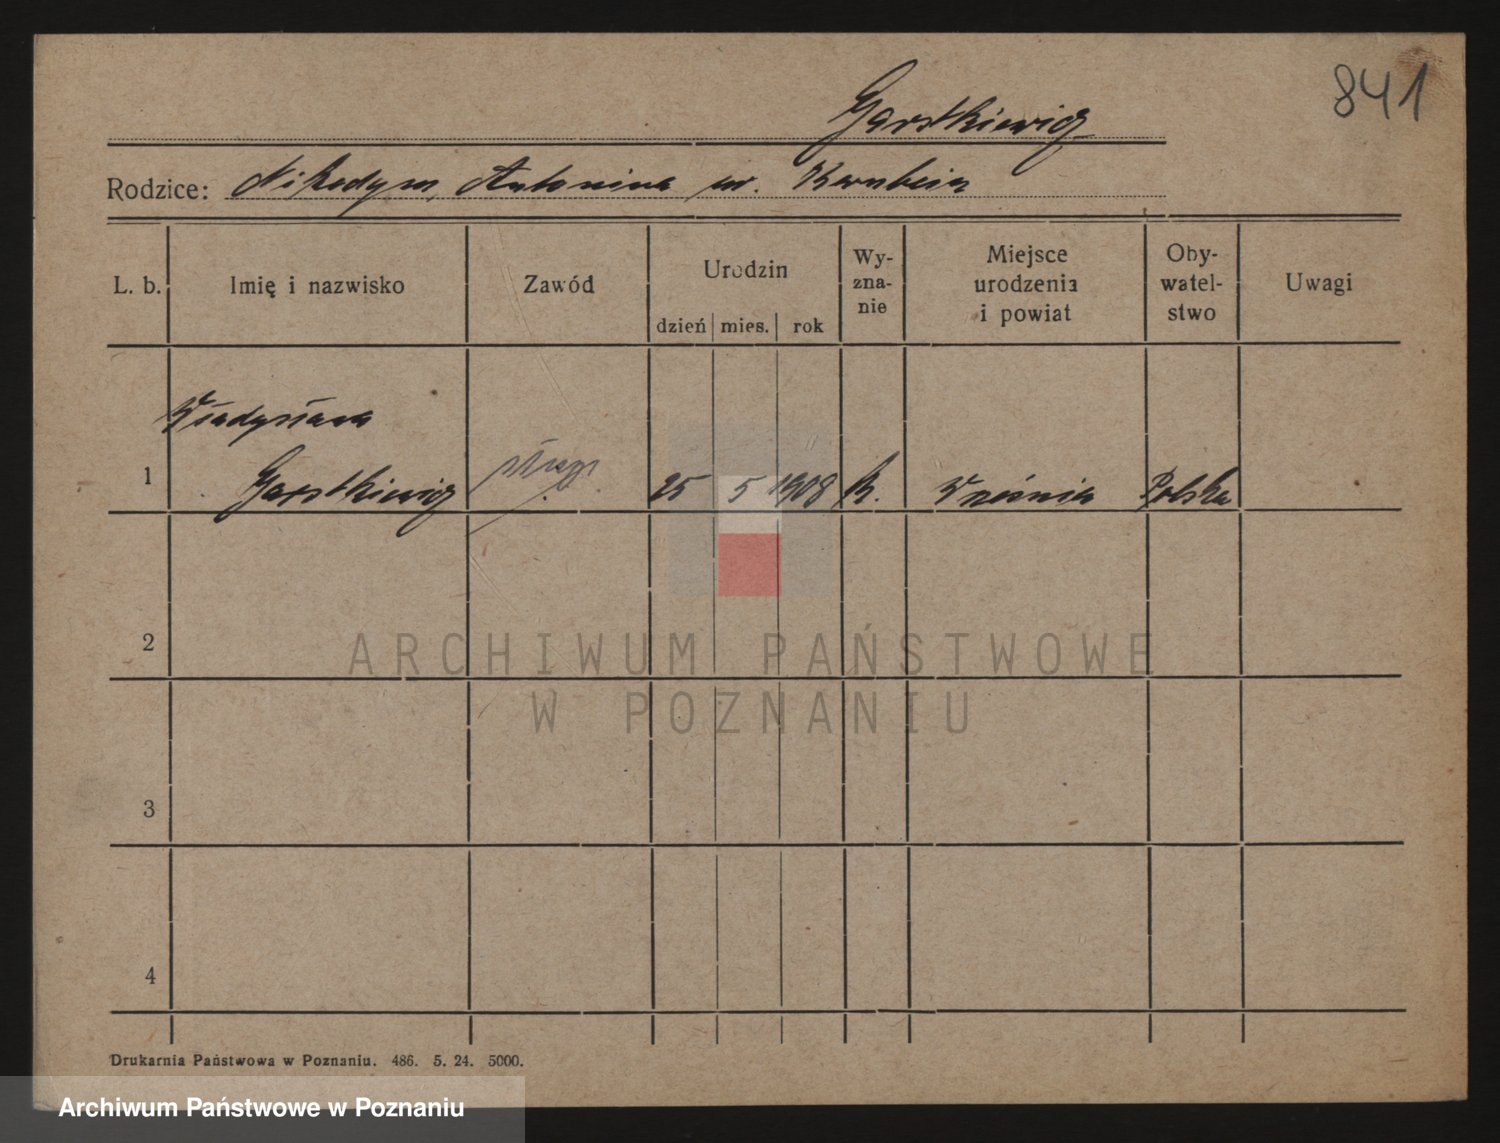 841
Garstkiewicz
Rodzice: Nikodym, Antonina ur.
L. b. Imię i nazwisko Zawód Urodzin dzień mies. rok Wy-zna-nie Miejsce urodzenia i powiat Oby-watel-stwo Uwagi
Władysława
1 Garstkiewicz 25 5 1908 k. Września Polska
2
ARCHIWUM PAŃSTWOWE
W POZNANIU
3
4
Drukarnia Państwowa w Poznaniu. 486. 5. 24. 5000.
Archiwum Państwowe w Poznaniu